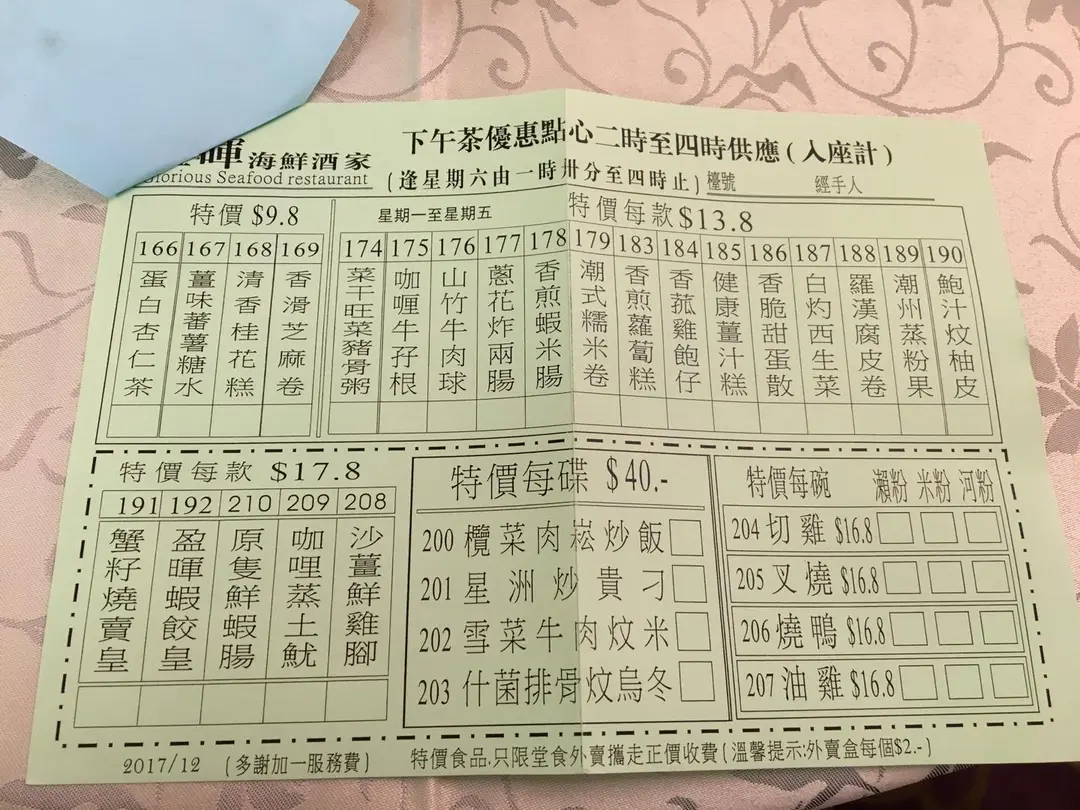 暉海鮮酒家
Glorious Seafood restaurant
下午茶優惠點心二時至四時供應(入座計)
(逢星期六由一時卅分至四時止)
檯號 經手人
特價 $9.8
166 蛋白杏仁茶
167 薑味蕃薯糖水
168 清香桂花糕
169 香滑芝麻卷
星期一至星期五
特價每款$13.8
174 菜干旺菜豬骨粥
175 咖喱牛孖根
176 山竹牛肉球
177 蔥花炸兩腸
178 香煎蝦米腸
179 潮式糯米卷
183 香煎蘿蔔糕
184 香菰雞飽仔
185 健康薑汁糕
186 香脆甜蛋散
187 白灼西生菜
188 羅漢腐皮卷
189 潮州蒸粉果
190 鮑汁炆柚皮
特價每款 $17.8
191 蟹籽燒賣皇
192 盈暉蝦餃皇
210 原隻鮮蝦腸
209 咖哩蒸土魷
208 沙薑鮮雞腳
特價每碟 $40.-
200 欖菜肉崧炒飯
201 星洲炒貴刁
202 雪菜牛肉炆米
203 什菌排骨炆烏冬
特價每碗 瀨粉 米粉 河粉
204 切雞 $16.8
205 叉燒 $16.8
206 燒鴨 $16.8
207 油雞 $16.8
2017/12 (多謝加一服務費) 特價食品.只限堂食外賣攜走正價收費(溫馨提示:外賣盒每個$2.-)